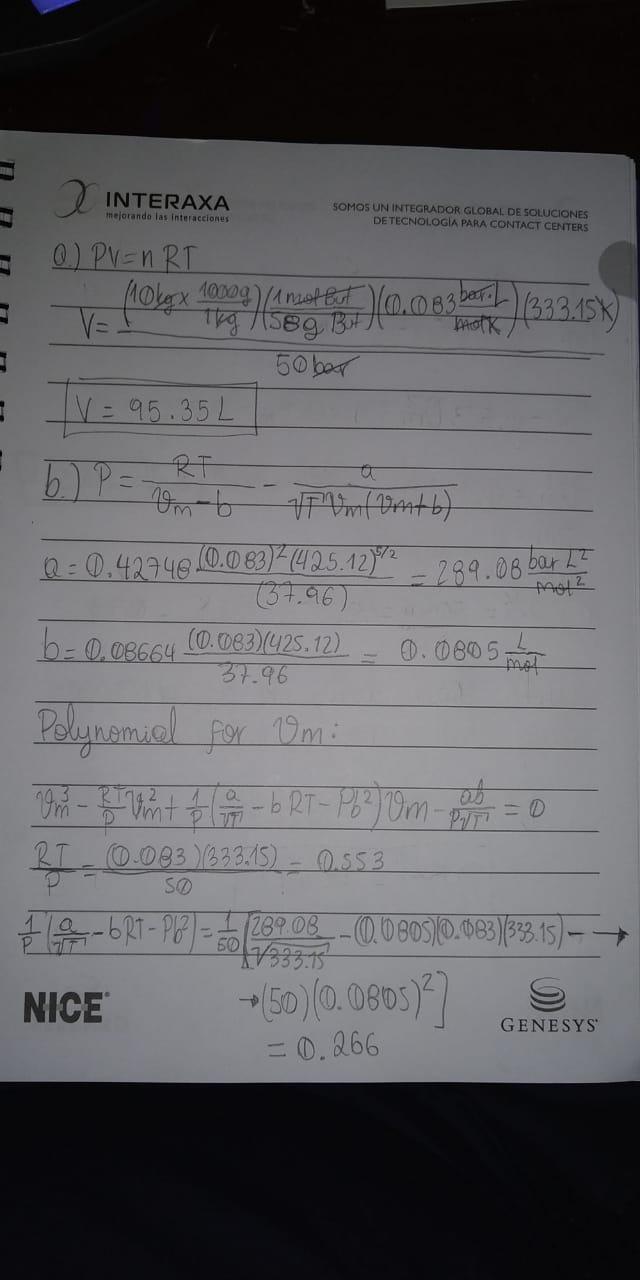 INTERAXA
mejorando las interacciones
SOMOS UN INTEGRADOR GLOBAL DE SOLUCIONES
DE TECNOLOGÍA PARA CONTACT CENTERS
a.) PV = n RT
V = (10kg x 1000g/1kg)(1 mol But/58g But)(0.083 bar·L/mol K)(333.15K)
50 bar
V = 95.35 L
b.) P = RT/(Vm - b) - a/(√T Vm(Vm+b))
a = 0.42748 (0.083)²(425.12)^5/2/(37.96) = 289.08 bar L²/mol²
b = 0.08664 (0.083)(425.12)/37.96 = 0.0805 L/mol
Polynomial for Vm:
Vm³ - RT/P Vm² + 1/P(a/√T - bRT - Pb²)Vm - ab/P√T = 0
RT/P = (0.083)(333.15)/50 = 0.553
1/P(a/√T - bRT - Pb²) = 1/50[289.08/√333.15 - (0.0805)(0.083)(333.15) - →
→ (50)(0.0805)²]
= 0.266
NICE®
GENESYS